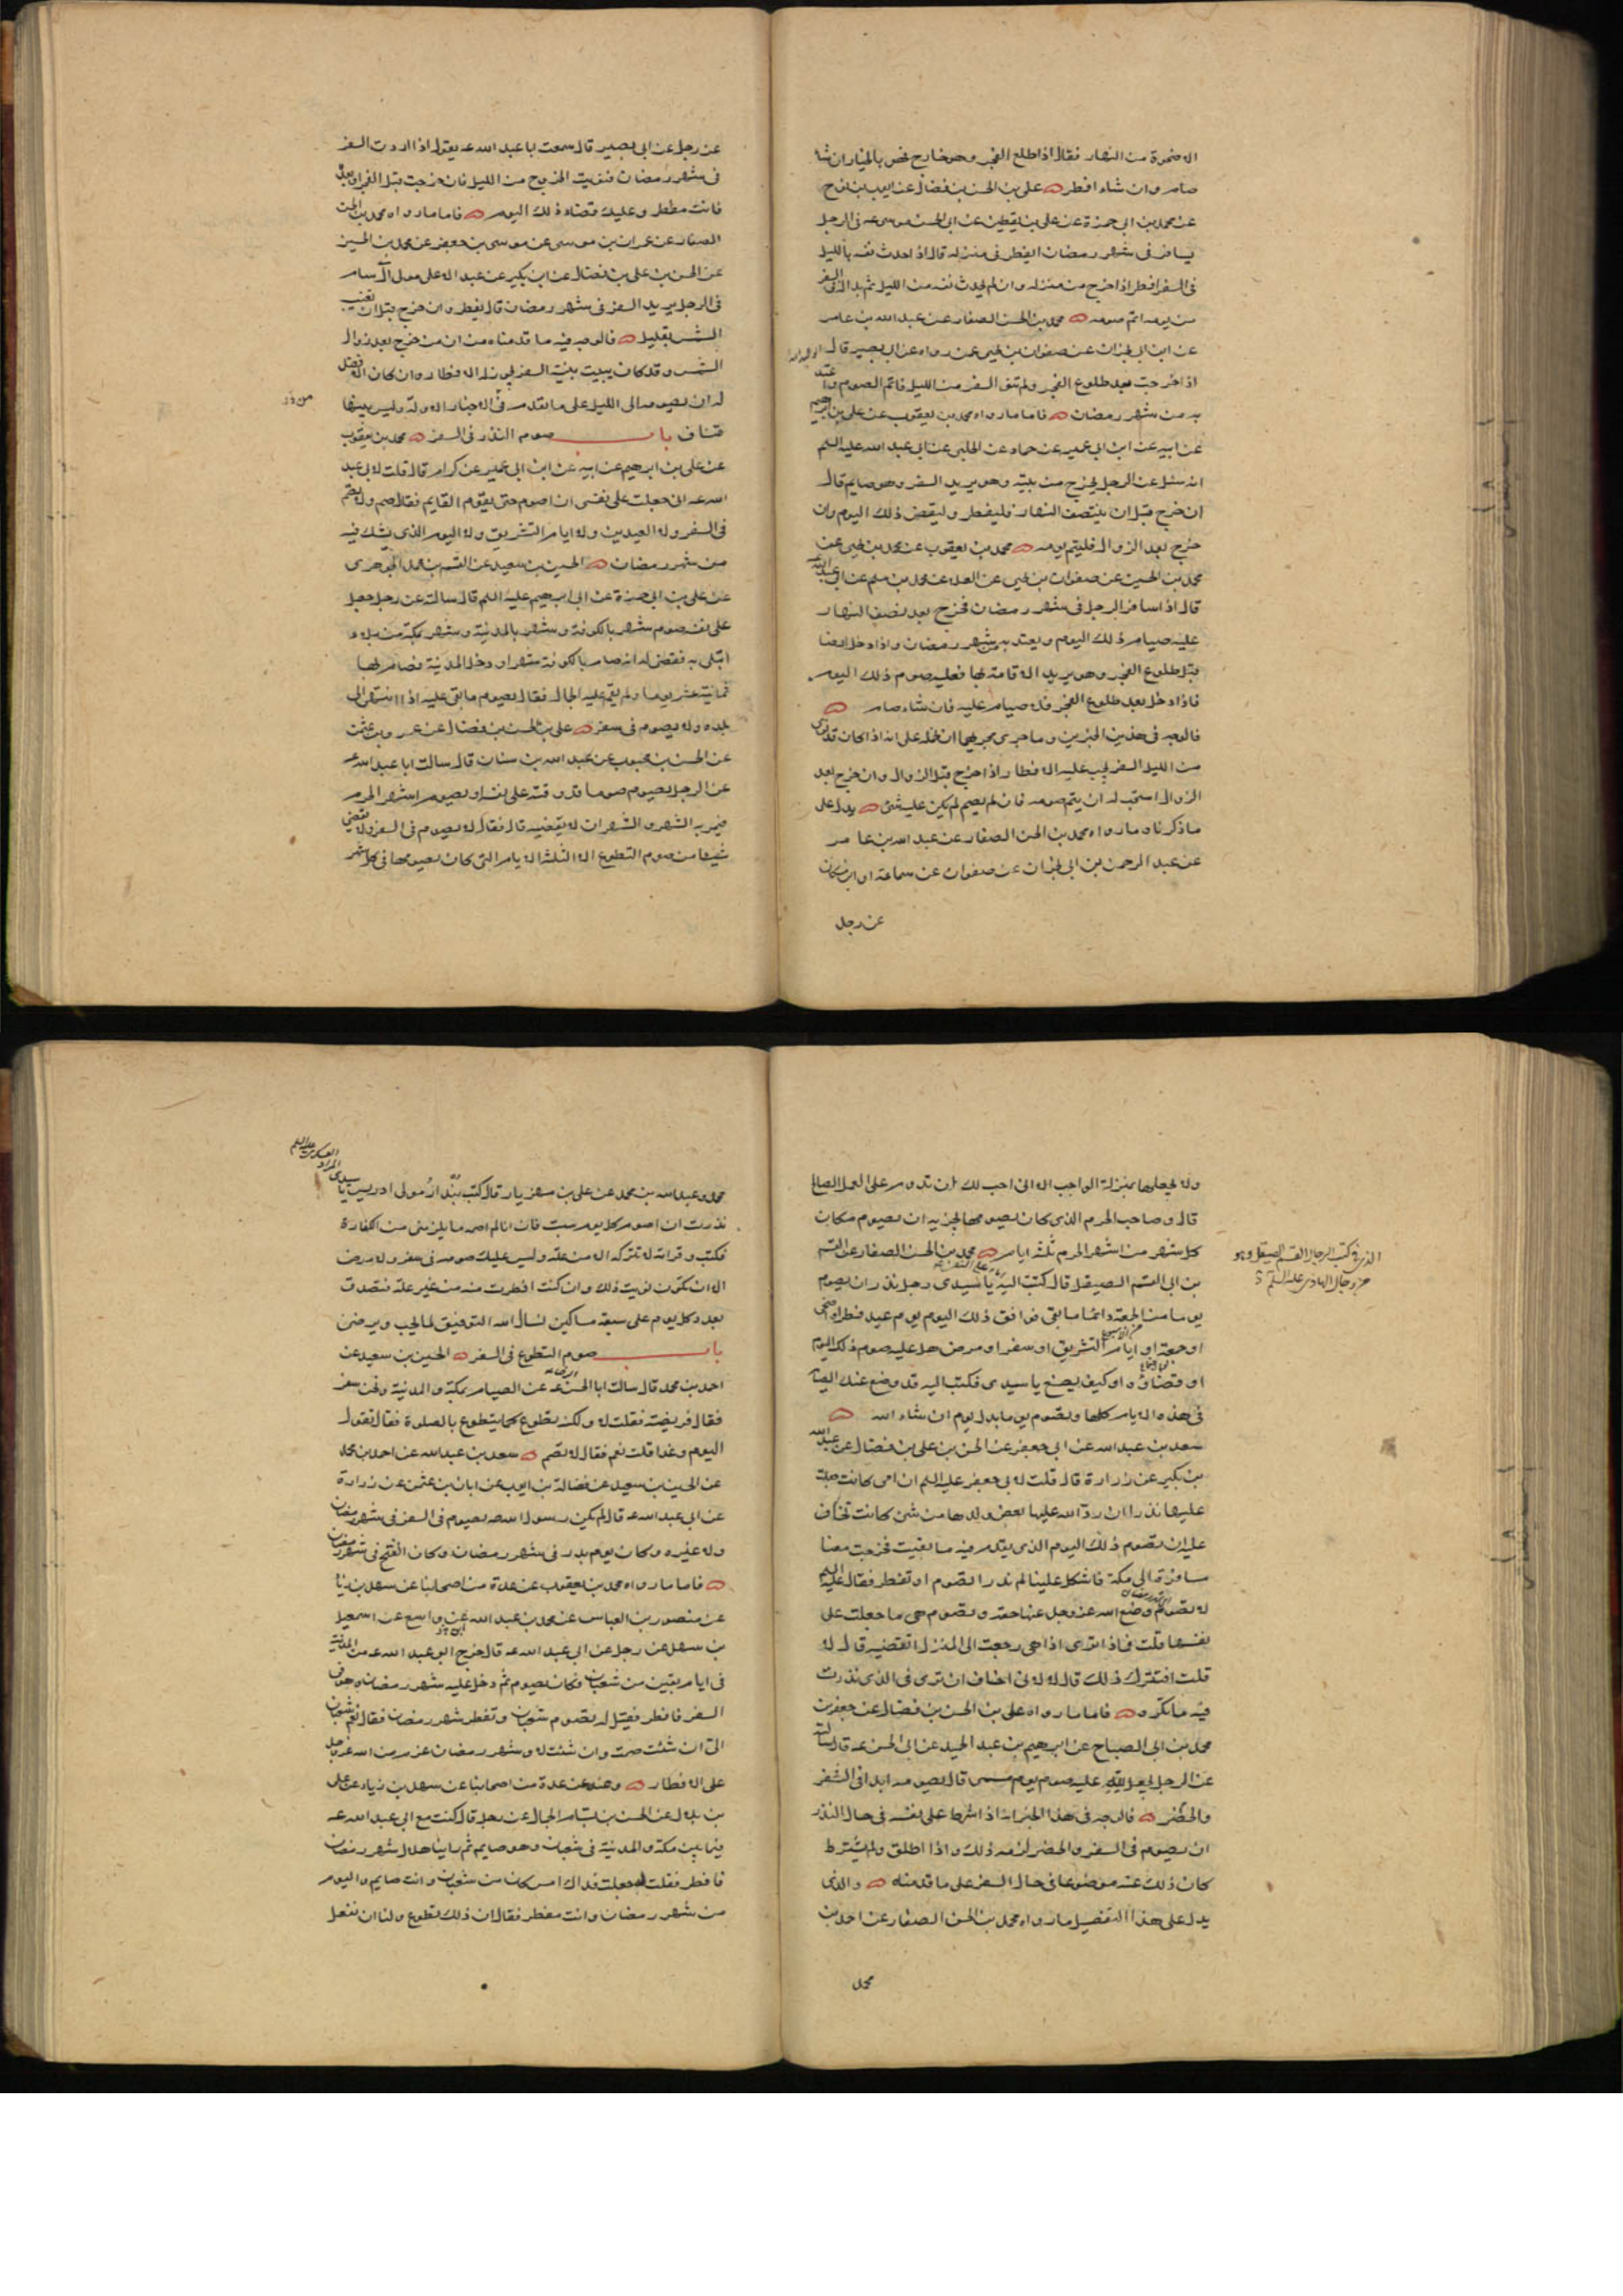 الا ضحوة من النهار فقال اذا طلع الفجر وهو خارج فهو بالخيار ان شاء
صام وان شاء افطر علي بن الحسن بن فضال عن ايوب بن نوح
عن محمد بن ابي حمزة عن علي بن يقطين عن ابي الحسن موسى عه في الرجل
يسافر في شهر رمضان ايفطر في منزله قال اذا حدث نفسه بالليل
في السفر افطر اذا خرج من منزله وان لم يحدث نفسه من الليل ثم بدا له في السفر
من يومه اتم صومه محمد بن الحسن الصفار عن عبد الله بن عامر
عن ابن ابي نجران عن صفوان بن يحيى عمن رواه عن ابي بصير قال
اذا خرجت بعد طلوع الفجر ولم تنو السفر من الليل فاتم الصوم واعتد
به من شهر رمضان فاما ما رواه محمد بن يعقوب عن علي بن ابرهيم
عن ابيه عن ابن ابي عمير عن حماد عن الحلبي عن ابي عبد الله عليه السلم
انه سئل عن الرجل يخرج من بيته وهو يريد السفر وهو صايم قال
ان خرج قبل ان ينتصف النهار فليفطر وليقض ذلك اليوم وان
خرج بعد الزوال فليتم يومه محمد بن يعقوب عن محمد بن يحيى عن
محمد بن الحسين عن صفوان بن يحيى عن العلا عن محمد بن مسلم عن ابي عبد الله
قال اذا سافر الرجل في شهر رمضان فخرج بعد نصف النهار
عليه صيام ذلك اليوم ويعتد به من شهر رمضان واذا دخل ارضا
قبل طلوع الفجر وهو يريد الاقامة بها فعليه صوم ذلك اليوم
فاذا دخل بعد طلوع الفجر فلا صيام عليه فان شاء صام
فالوجه في هذين الخبرين وما جرى مجريهما ان نحمله على انه اذا كان قد نوى
من الليل السفر يجب عليه الافطار اذا خرج قبل الزوال وان خرج بعد
الزوال استحب له ان يتم صومه فان لم يصم لم يكن عليه شئ يدل على
ما ذكرناه ما رواه محمد بن الحسن الصفار عن عبد الله بن عامر
عن عبد الرحمن بن ابي نجران عن صفوان عن سماعة او ابن مسكان
عن رجل
عن رجل عن ابي بصير قال سمعت ابا عبد الله عه يقول اذا اردت السفر
في شهر رمضان فنويت الخروج من الليل فان خرجت قبل الفجر او بعده
فانت مفطر وعليك قضاء ذلك اليوم فاما ما رواه محمد بن الحسن
الصفار عن عمران بن موسى عن موسى بن جعفر عن محمد بن الحسين
عن الحسن بن علي بن فضال عن ابن بكير عن عبد الاعلى مولى آل سام
في الرجل يريد السفر في شهر رمضان قال يفطر وان خرج قبل ان تغيب
الشمس بقليل فالوجه فيه ما قدمناه من ان من خرج بعد زوال
الشمس وقد كان يبيت بنية السفر يجوز له الافطار وان كان الافضل
له ان يصومه الى الليل على ما تقدم في الاخبار الاولة وليس بينها
تناف باب صوم النذر في السفر محمد بن يعقوب
عن علي بن ابرهيم عن ابيه عن ابن ابي عمير عن كرام قال قلت لابي عبد
الله عه اني جعلت على نفسي ان اصوم حتى يقوم القايم فقال صم ولا تصم
في السفر ولا العيدين ولا ايام التشريق ولا اليوم الذي يشك فيه
من شهر رمضان الحسين بن سعيد عن القسم بن محمد الجوهري
عن علي بن ابي حمزة عن ابي ابرهيم عليه السلم قال سالته عن رجل جعل
على نفسه صوم شهر بالكوفة وشهر بالمدينة وشهر بمكة من بلاء
ابتلى به فقضى له انه صام بالكوفة شهرا ودخل المدينة فصام بها
ثمانية عشر يوما ولم يقم عليه الجمال فقال يصوم ما بقي عليه اذا انتهى الى
بلده ولا يصوم في سفر علي بن الحسن بن فضال عن عمرو بن عثمن
عن الحسن بن محبوب عن عبد الله بن سنان قال سالت ابا عبد الله عه
عن الرجل يصوم صوما قد وقته على نفسه او يصوم اشهر الحرم
فيمر به الشهر والشهران لا يقضيه قال فقال لا يصوم في السفر ولا يقضي
شيئا من صوم التطوع الا الثلثة الايام التي كان يصومها في كل شهر
ولا يجعلها بمنزلة الواجب الا اني احب لك ان تدوم على العمل الصالح
قال وصاحب الحرم الذي كان يصومها يجزيه ان يصوم مكان
كل شهر من اشهر الحرم ثلثة ايام محمد بن الحسن الصفار عن القسم
بن ابي القسم الصيقل قال كتبت اليه يا سيدي رجل نذر ان يصوم
يوما من الجمعة دائما ما بقي فوافق ذلك اليوم يوم عيد فطر او اضحى
او جمعة او ايام التشريق او سفر او مرض هل عليه صوم ذلك اليوم
او قضاؤه او كيف يصنع يا سيدي فكتب اليه قد وضع عنك الصيام
في هذه الايام كلها وتصوم يوما بدل يوم ان شاء الله
سعد بن عبد الله عن ابي جعفر عن الحسن بن علي بن فضال عن عبد الله
بن بكير عن زرارة قال قلت لابي جعفر عليه السلم ان امي كانت جعلت
عليها نذرا ان رد الله عليها بعض ولدها من شئ كانت تخاف
عليه ان تصوم ذلك اليوم الذي يقدم فيه ما بقيت فخرجت معنا
مسافرة الى مكة فاشكل علينا لم ندر اتصوم او تفطر فقال عليه السلم
لا تصوم وضع الله عز وجل عنها حقه وتصوم هي ما جعلت على
نفسها قلت فماذا ترى اذا هي رجعت الى المنزل اتقضيه قال لا
قلت افتترك ذلك قال لا لاني اخاف ان ترى في الذي نذرت
فيه ما تكره فاما ما رواه علي بن الحسن بن فضال عن جعفر بن
محمد بن ابي الصباح عن ابرهيم بن عبد الحميد عن ابي الحسن عه قال سالته
عن الرجل يجعل لله عليه صوم يوم مسمى قال يصومه ابدا في السفر
والحضر فالوجه في هذا الخبر انه اذا شرط على نفسه في حال النذر
ان يصوم في السفر والحضر لزمه ذلك واذا اطلق ولم يشترط
كان ذلك عنه موضوعا في حال السفر على ما قدمناه والذي
يدل على هذا التفصيل ما رواه محمد بن الحسن الصفار عن احمد بن
محمد
محمد وعبد الله بن محمد عن علي بن مهزيار قال كتب بندار مولى ادريس يا سيدي
نذرت ان اصوم كل يوم سبت فان انا لم اصمه ما يلزمني من الكفارة
فكتب وقراته لا تتركه الا من علة وليس عليك صومه في سفر ولا مرض
الا ان تكون نويت ذلك وان كنت افطرت منه من غير علة فتصدق
بعدد كل يوم على سبعة مساكين نسال الله التوفيق لما يحب ويرضى
باب صوم التطوع في السفر الحسين بن سعيد عن
احمد بن محمد قال سالت ابا الحسن عه عن الصيام بمكة والمدينة ونحن سفر
فقال فريضة فقلت لا ولكنه تطوع كما يتطوع بالصلوة فقال تقول
اليوم وغدا قلت نعم فقال لا تصم سعد بن عبد الله عن احمد بن محمد
عن الحسين بن سعيد عن فضالة بن ايوب عن ابان بن عثمن عن زرارة
عن ابي عبد الله عه قال لم يكن رسول الله صه يصوم في السفر في شهر رمضان
ولا غيره وكان يوم بدر في شهر رمضان وكان الفتح في شهر رمضان
فاما ما رواه محمد بن يعقوب عن عدة من اصحابنا عن سهل بن زياد
عن منصور بن العباس عن محمد بن عبد الله عن واسع عن اسمعيل
بن سهل عن رجل عن ابي عبد الله عه قال خرج ابو عبد الله عه من المدينة
في ايام بقين من شعبان فكان يصوم ثم دخل عليه شهر رمضان وهو في
السفر فافطر فقيل له تصوم شعبان وتفطر شهر رمضان فقال نعم شعبان
الي ان شئت صمت وان شئت لا وشهر رمضان عزم من الله عز وجل
على الافطار وعنه عن عدة من اصحابنا عن سهل بن زياد عن علي
بن بلال عن الحسن بن بسام الجمال عن رجل قال كنت مع ابي عبد الله عه
فيما بين مكة والمدينة في شعبان وهو صايم ثم راينا هلال شهر رمضان
فافطر فقلت له جعلت فداك امس كان من شعبان وانت صايم واليوم
من شهر رمضان وانت مفطر فقال ان ذلك تطوع ولنا ان نفعل